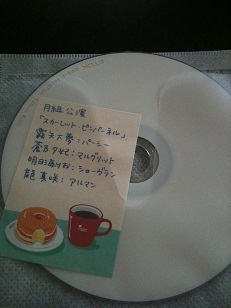 月組公演
「スカーレット・ピンパーネル」
霧矢大夢:パーシー
蒼乃夕妃:マルグリット
明日海りお:ショーヴラン
龍真咲:アルマン